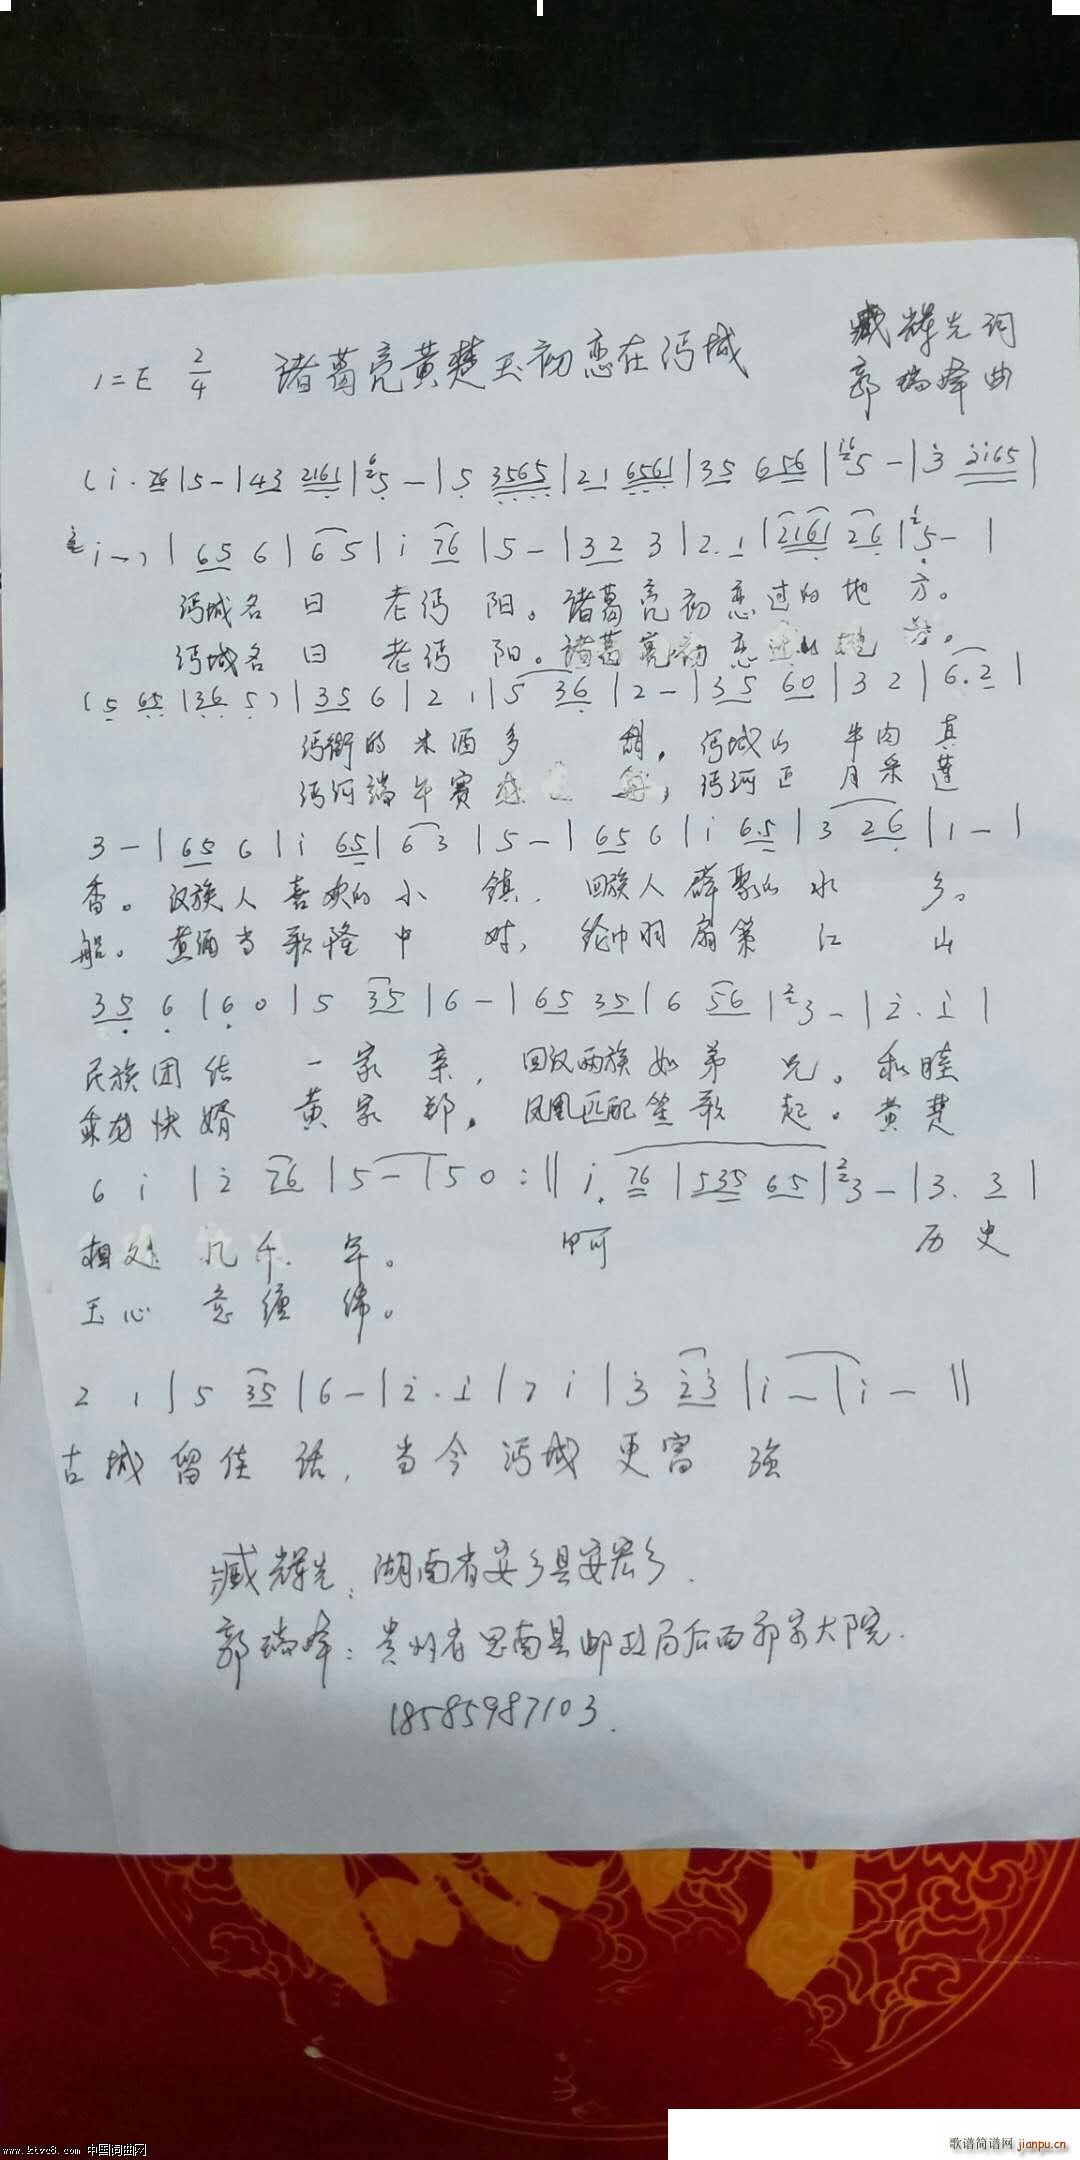 1=E 2/4 诸葛亮黄楚玉初恋在沔城
臧辉先词
郭瑞峰曲
(i· 76|5-|43 2161|5-|5 3565|21 6561|35 656|5-|3 2165|
i-)|65 6|65|i 76|5-|32 3|2·1|2161 26|5-|
沔城名曰老沔阳。诸葛亮初恋过的地方。
沔城名曰老沔阳。诸葛亮初恋过的地方。
(5 65|36 5)|35 6|2 1|5 36|2-|35 60|32|6·2|
沔街的米酒多甜,沔城的牛肉真
沔河端午赛,沔河正月采莲
3-|65 6|i 65|63|5-|65 6|i 6·5|3 26|1-|
香。汉族人喜欢的小镇,回族人群聚的水乡。
船。煮酒当歌隆中对,纶巾羽扇策江山
35 6|60|5 35|6-|65 35|6 56|3-|2·i|
民族团结一家亲,回汉两族如弟兄。和睦
乘龙快婿黄家郎,凤凰匹配笙歌起。黄楚
6 i|2 76|5-|50:‖i· 76|535 65|3-|3·3|
相处几千年。啊历史
玉心意缠绵。
2 1|5 35|6-|2·i|7 i|3 23|i-|i-‖
古城留佳话,当今沔城更富强
臧辉先:湖南省安乡县安宏乡.
郭瑞峰:贵州省思南县邮政局后面郭家大院.
18585987103.
www.ktvc8.com 中国词曲网
歌谱简谱网 jianpu.cn